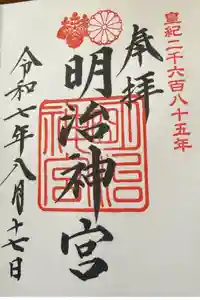 皇紀二千六百八十五年
奉拝
明治神宮
令和七年八月十七日
明治神宮